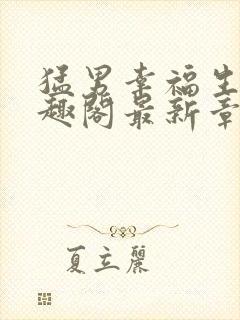 猛男幸福生
趣阁最新章
夏立丽